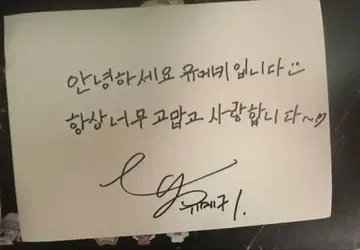 안녕하세요 유메키입니다
항상 너무 고맙고 사랑합니다~♡
유메키